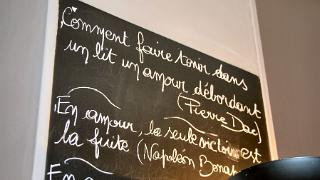 Comment faire tenir dans
un lit un amour débordant
(Pierre Dac)
En amour, la seule victoire est
la fuite (Napoléon Bonap
En